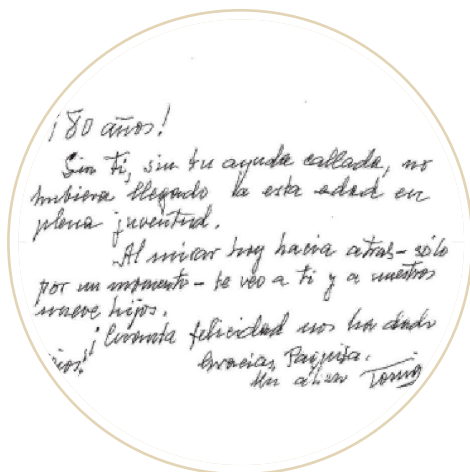 ¡80 años!
Sin ti, sin tu ayuda callada, no
hubiera llegado a esta edad en
plena juventud.
Al mirar hoy hacia atras - sólo
por un momento - te veo a ti y a nuestros
nueve hijos.
¡Cuanta felicidad nos ha dado
Dios!
Gracias, Paquita.
Un